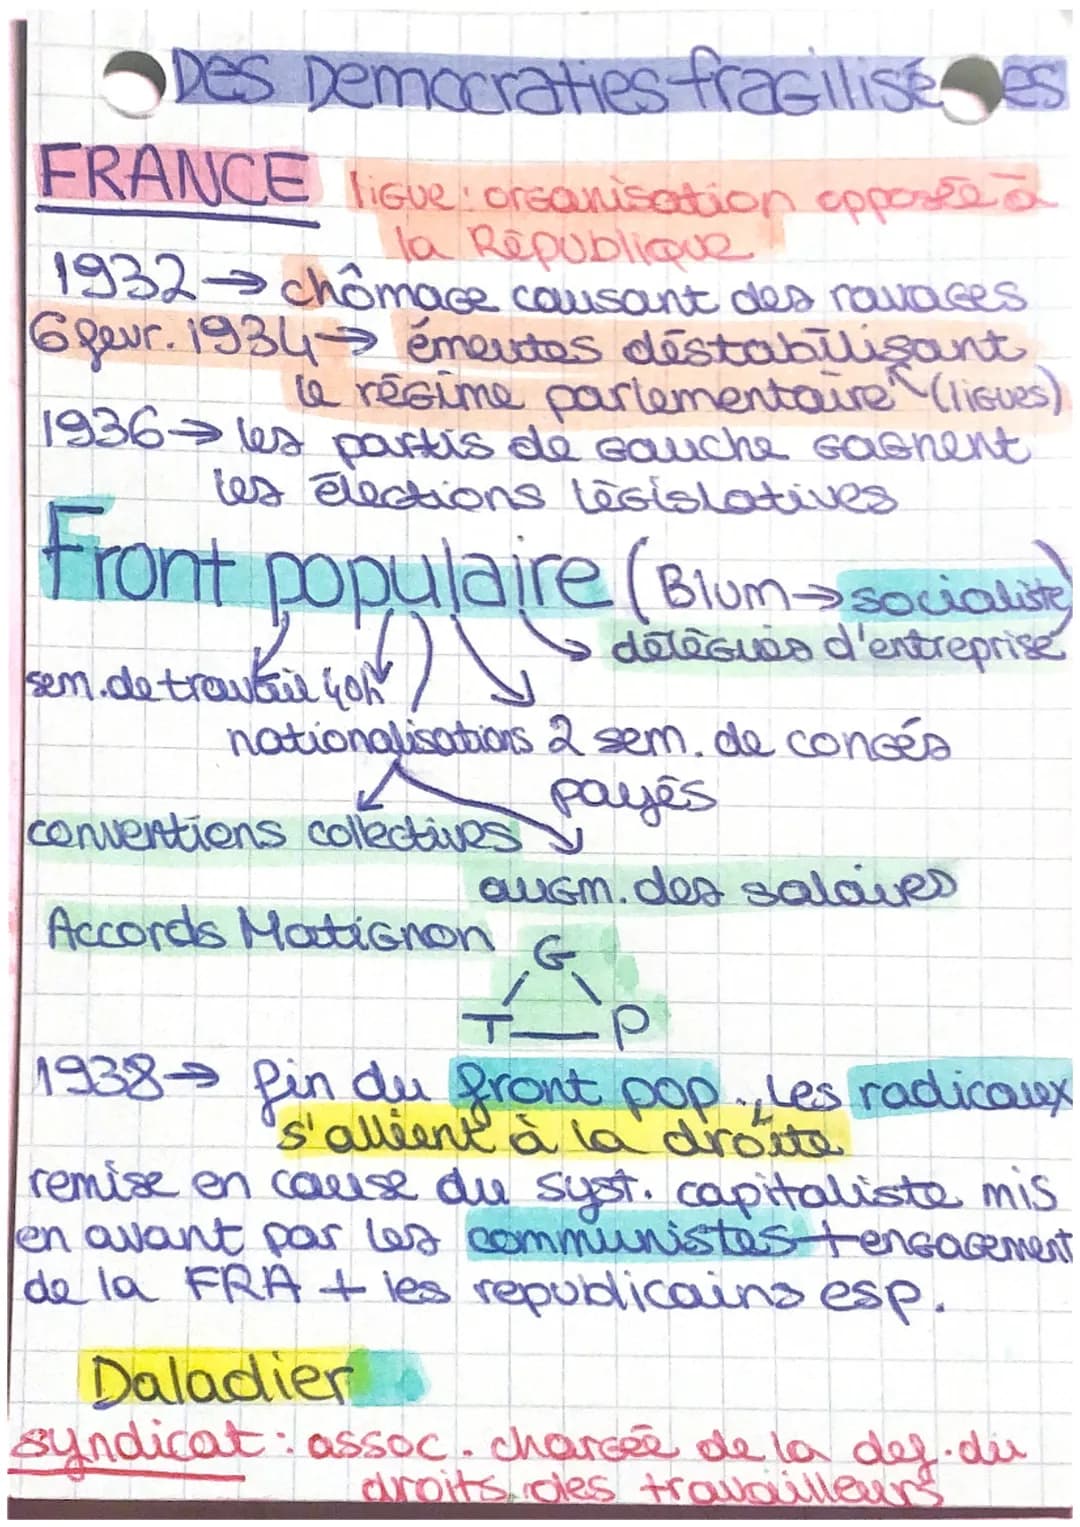 Des Democraties fragilisées
FRANCE
ligue : organisation opposée à
la République
1932 → chômage causant des ravages
6 fevr. 1934 → émeutes déstabilisant
le régime parlementaire (ligues)
1936 → les partis de gauche gagnent
les élections législatives
Front populaire (Blum → socialiste)
délégués d'entreprise
sem. de travail 40h
nationalisations 2 sem. de congés
payés
conventions collectives
augm. des salaires
Accords Matignon
G
T P
1938 → fin du front pop., les radicaux
s'allient à la droite
remise en cause du syst. capitaliste mis
en avant par les communistes + engagement
de la FRA + les republicains esp.
Daladier
syndicat : assoc. chargée de la def. du
droits des travailleurs